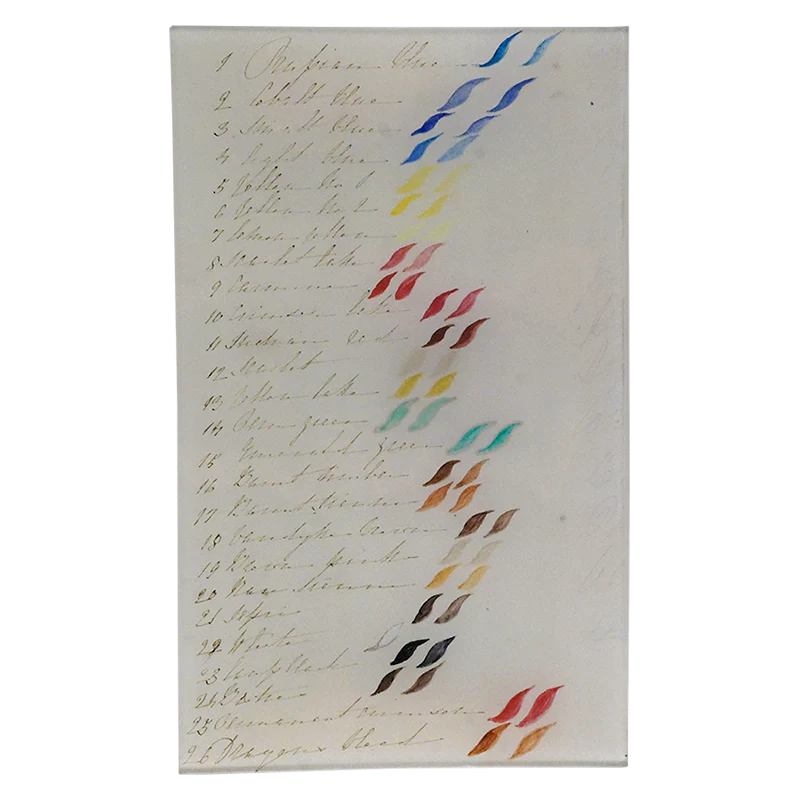 1 Prussian blue
2 Cobalt blue
3 Small blue
4 Light blue
5 Yellow No 1
6 Yellow No 2
7 Lemon yellow
8 Scarlet lake
9 Carmine
10 Crimson lake
11 Indian red
12 Scarlet
13 Yellow lake
14 green
15 Emerald green
16 Burnt Umber
17 Burnt Sienna
18 Vandyke brown
19 Brown pink
20 Raw Sienna
21 Sepia
22 White
23 Lamp black
24
25 Permanent crimson
26 Dragons blood